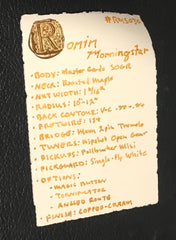 #RMS070
Ronin
Morningstar
• BODY: Master Grade
• NECK: Roasted Maple
• NUT WIDTH: 1 11/16"
• RADIUS: 10"-12"
• BACK CONTOUR:
• FRETWIRE:
• BRIDGE: Tremolo
• TUNERS: Hipshot Open Gear
• PICKUPS: Foilbucker Mini
• PICKGUARD: Single-Ply White
• OPTIONS:
- MAGIC BUTTON
- TORMINATOR
- ANGLED ROUTE
• FINISH: COFFEE-CREAM